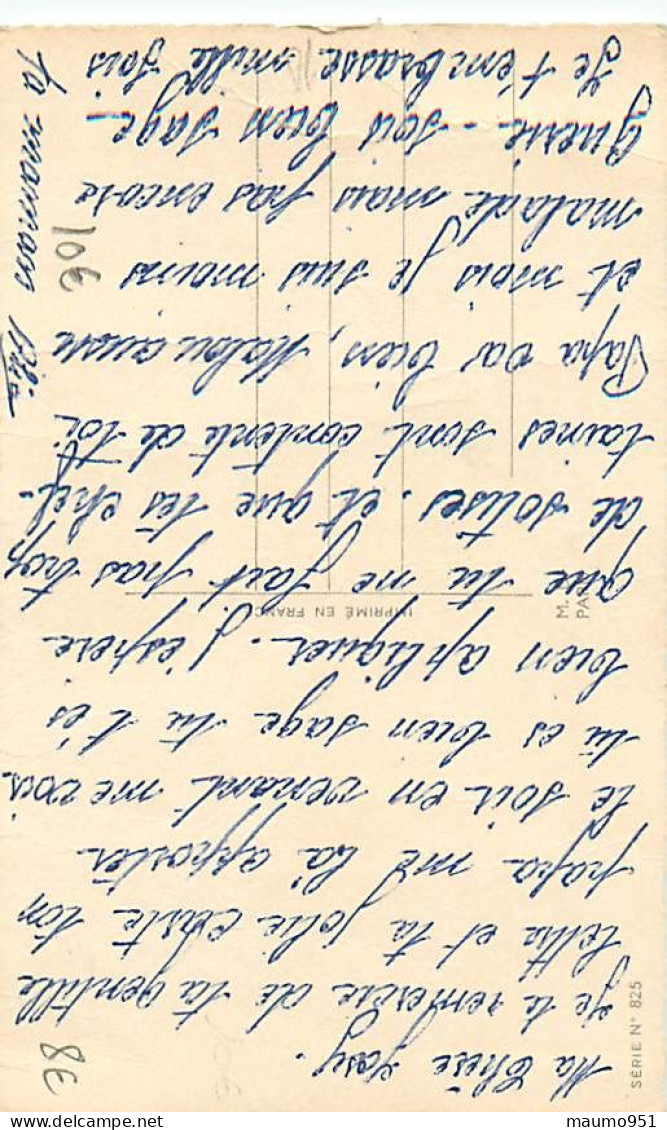 Ma Chère Josy.
Je te remercie de ta gentille
lettre et ta jolie carte ton
papa me l'a apporter
le soir en venant me voir.
tu es bien sage tu t'es
bien apliquer. J'espère
que tu me fait pas trop
de sotises. et que tes chef-
taines sont contente de toi
Papa va bien, Malou aussi
et moi je suis moins
malade mais pas encore
guerie - sois bien sage
Je t'embrasse mille fois
Ta maman
8€
10€
IMPRIMÉ EN FRANC
M.
PAR
SÉRIE N° 825
delcampe.net
maumo951